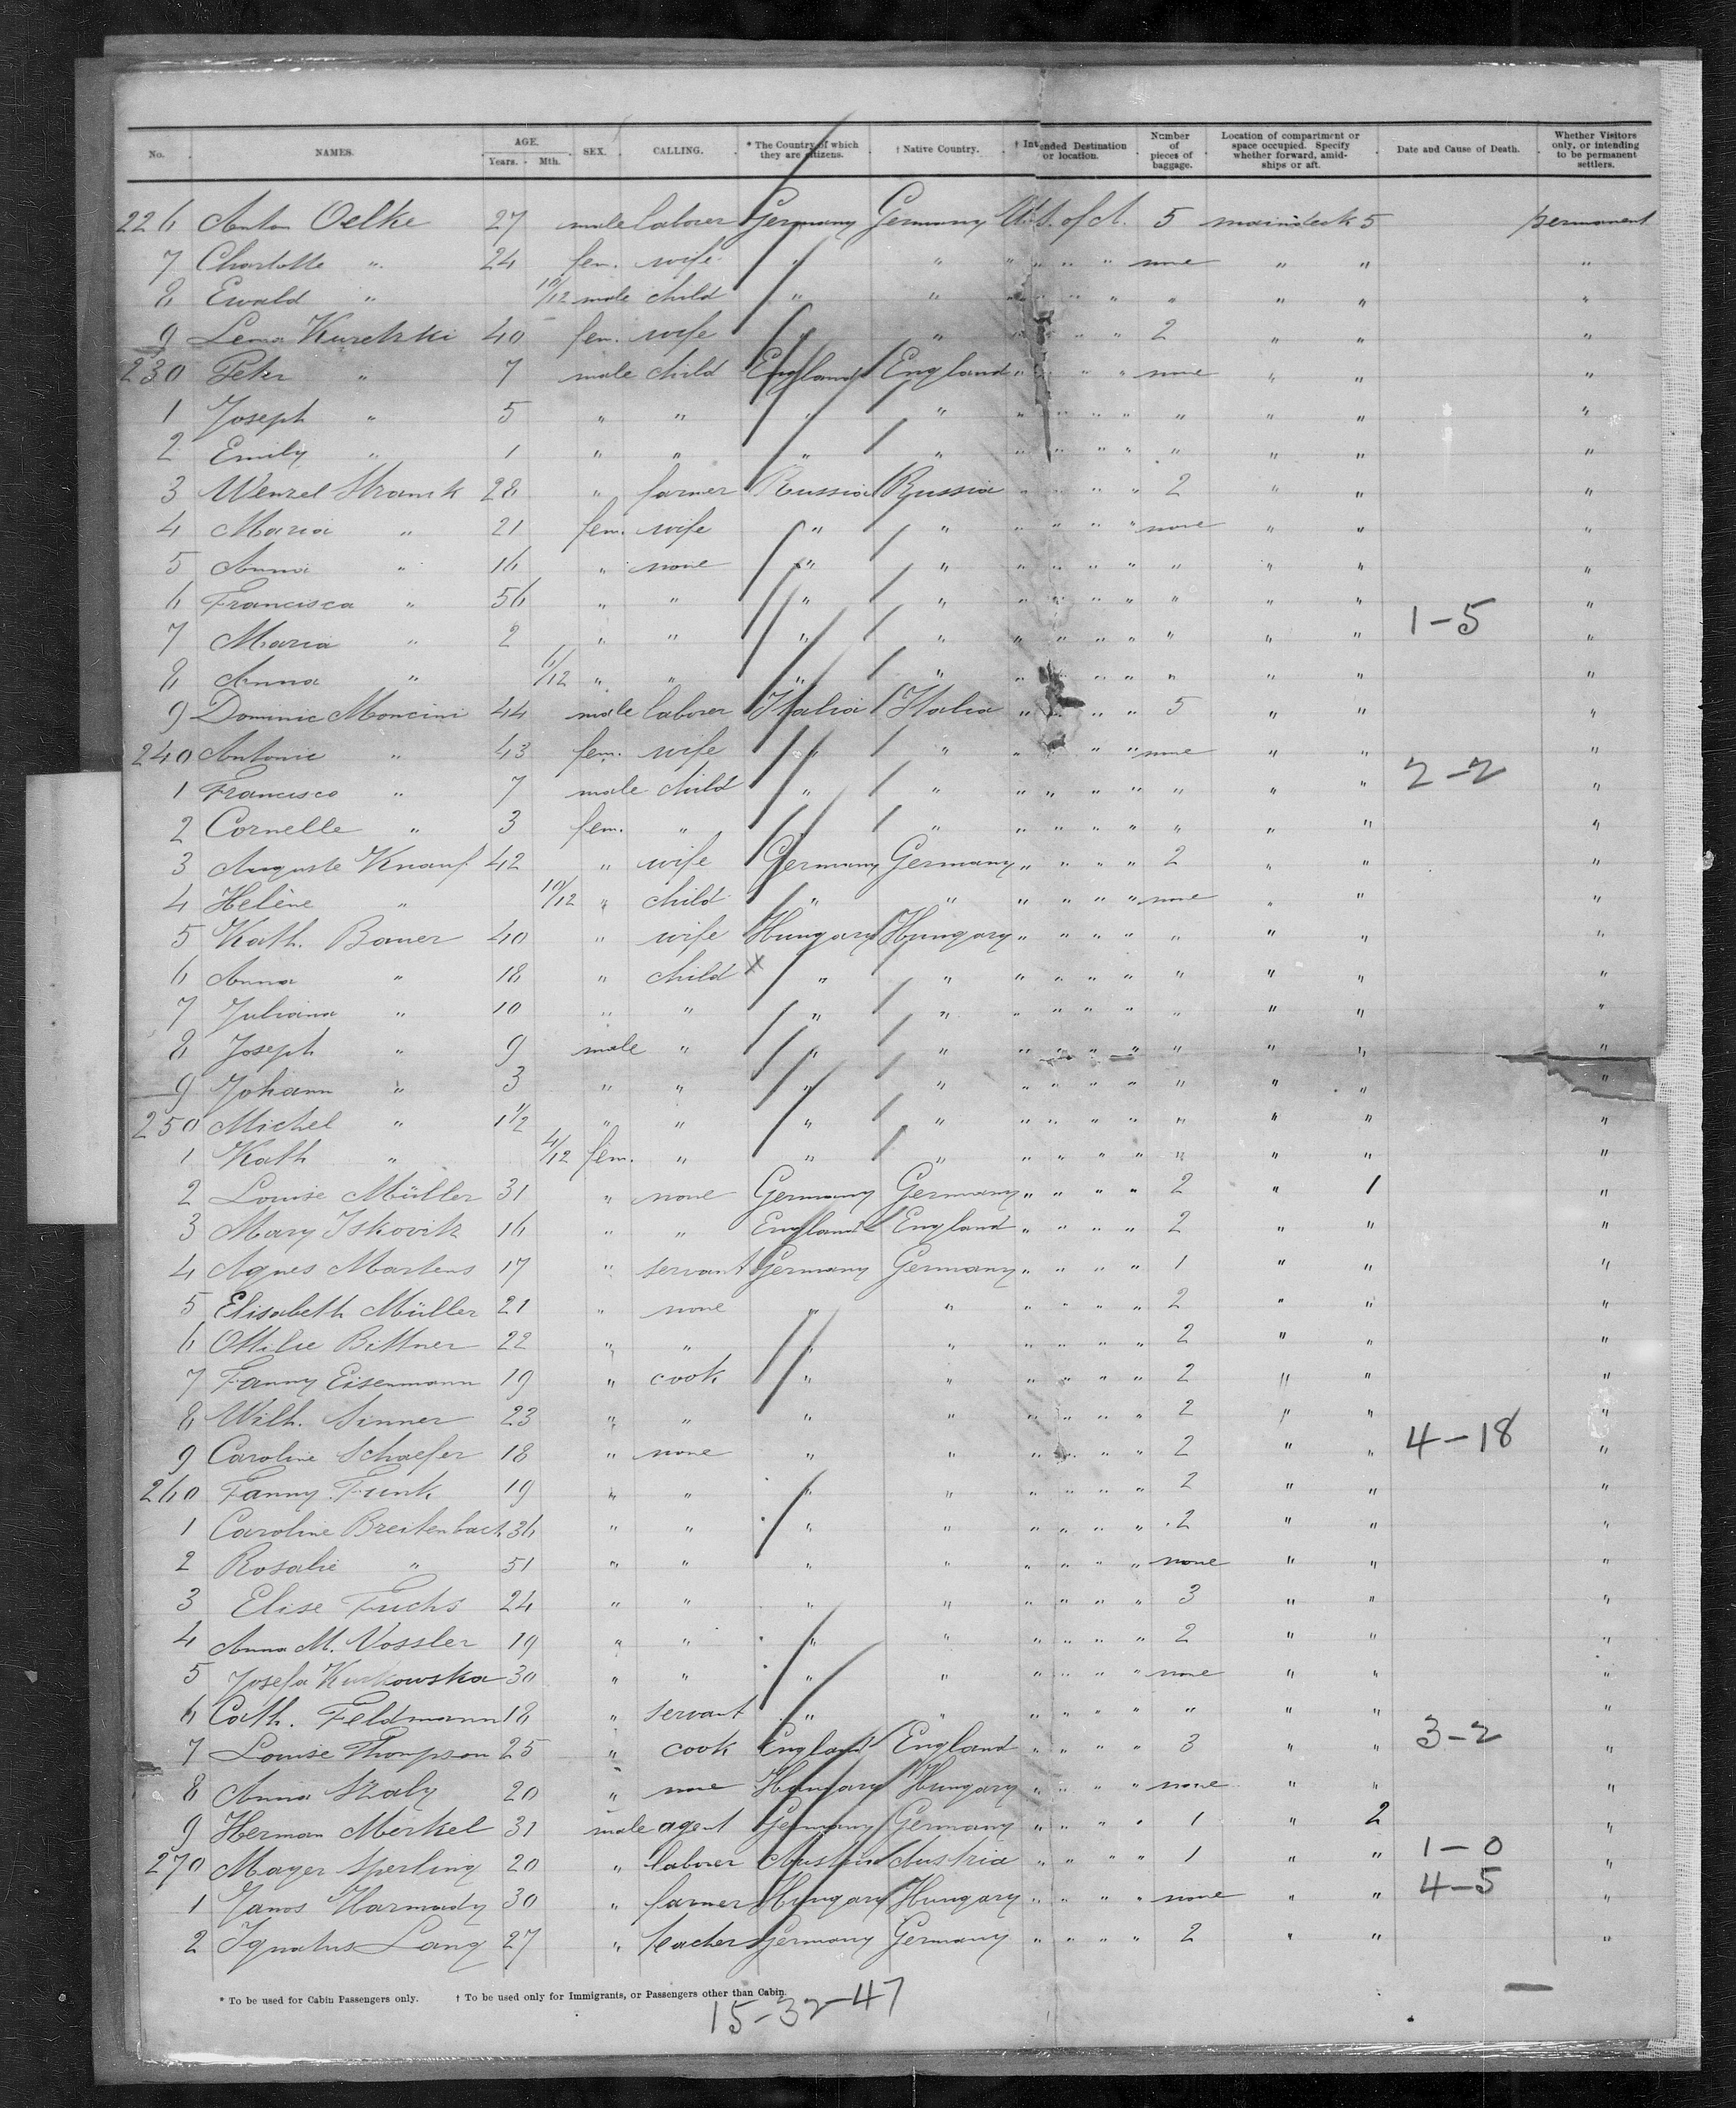 No. NAMES. AGE. Years. Mth. SEX. CALLING. * The Country of which they are citizens. † Native Country. † Intended Destination or location. Number of pieces of baggage. Location of compartment or space occupied. Specify whether forward, amidships or aft. Date and Cause of Death. Whether Visitors only, or intending to be permanent settlers.
226 Anton Oelke 27 male laborer Germany Germany U. S. of A. 5 maindeck 5 permanent
7 Charlotte " 24 fem. wife " " " " " " none " " "
8 Ewald " 10/12 male child " " " " " " " " " "
9 Lena Kuretzki 40 fem. wife " " " " " " 2 " " "
230 Peter " 7 male child England England " " " " none " " "
1 Joseph " 5 " " " " " " " " " " " "
2 Emily " 1 " " " " " " " " " " " "
3 Wenzel 28 " farmer Russia Russia " " " " 2 " " "
4 Maria " 21 fem. wife " " " " " " none " " "
5 Anna " 16 " none " " " " " " " " " "
6 Francisca " 56 " " " " " " " " " " " "
7 Maria " 2 " " " " " " " " " " " 1-5 "
8 Anna " 6/12 " " " " " " " " " " " "
9 Dominic Moncini 44 male laborer Italia Italia " " " " 5 " " "
240 Antonie " 43 fem. wife " " " " " " none " " "
1 Francisco " 7 male child " " " " " " " " " 2-2 "
2 Cornelle " 3 fem. " " " " " " " " " " "
3 Auguste Knauf 42 " wife Germany Germany " " " " 2 " " "
4 Helene " 10/12 " child " " " " " " none " " "
5 Kath. Bauer 40 " wife Hungary Hungary " " " " " " " "
6 Anna " 18 " child x " " " " " " " " " "
7 Juliana " 10 " " " " " " " " " " " "
8 Joseph " 9 male " " " " " " " " " " "
9 Johann " 3 " " " " " " " " " " " "
250 Michel " 1 1/2 " " " " " " " " " " " "
1 Kath " 4/12 fem. " " " " " " " " " " "
2 Louise Müller 31 " none Germany Germany " " " " 2 " 1 "
3 Mary Iskovitz 16 " " England England " " " " 2 " " "
4 Agnes Martens 17 " servant Germany Germany " " " " 1 " " "
5 Elisabeth Müller 21 " none " " " " " " 2 " " "
6 Ottilie Bittner 22 " " " " " " " " 2 " " "
7 Fanny Eisenmann 19 " cook " " " " " " 2 " " "
8 Wilh. Sinner 23 " " " " " " " " 2 " " "
9 Caroline Schaefer 18 " none " " " " " " 2 " " 4-18 "
260 Fanny Funk 19 " " " " " " " " 2 " " "
1 Caroline Breitenbach 36 " " " " " " " " 2 " " "
2 Rosalie " 51 " " " " " " " " none " " "
3 Elise Fuchs 24 " " " " " " " " 3 " " "
4 Anna M. Vossler 19 " " " " " " " " 2 " " "
5 Josefa 30 " " " " " " " " none " " "
6 Cath. Feldmann 18 " servant " " " " " " " " " "
7 Louise Thompson 25 " cook England England " " " " 3 " " 3-2 "
8 Anna Szaly 20 " none Hungary Hungary " " " " none " " "
9 Herman Merkel 31 male agent Germany Germany " " " " 1 " 2 "
270 Mayer Sperling 20 " laborer Austria Austria " " " " 1 " " 1-0 "
1 Janos Harmady 30 " farmer Hungary Hungary " " " " none " " 4-5 "
2 Ignatus Lang 27 " teacher Germany Germany " " " " 2 " " "
* To be used for Cabin Passengers only. † To be used only for Immigrants, or Passengers other than Cabin.
15-32-47